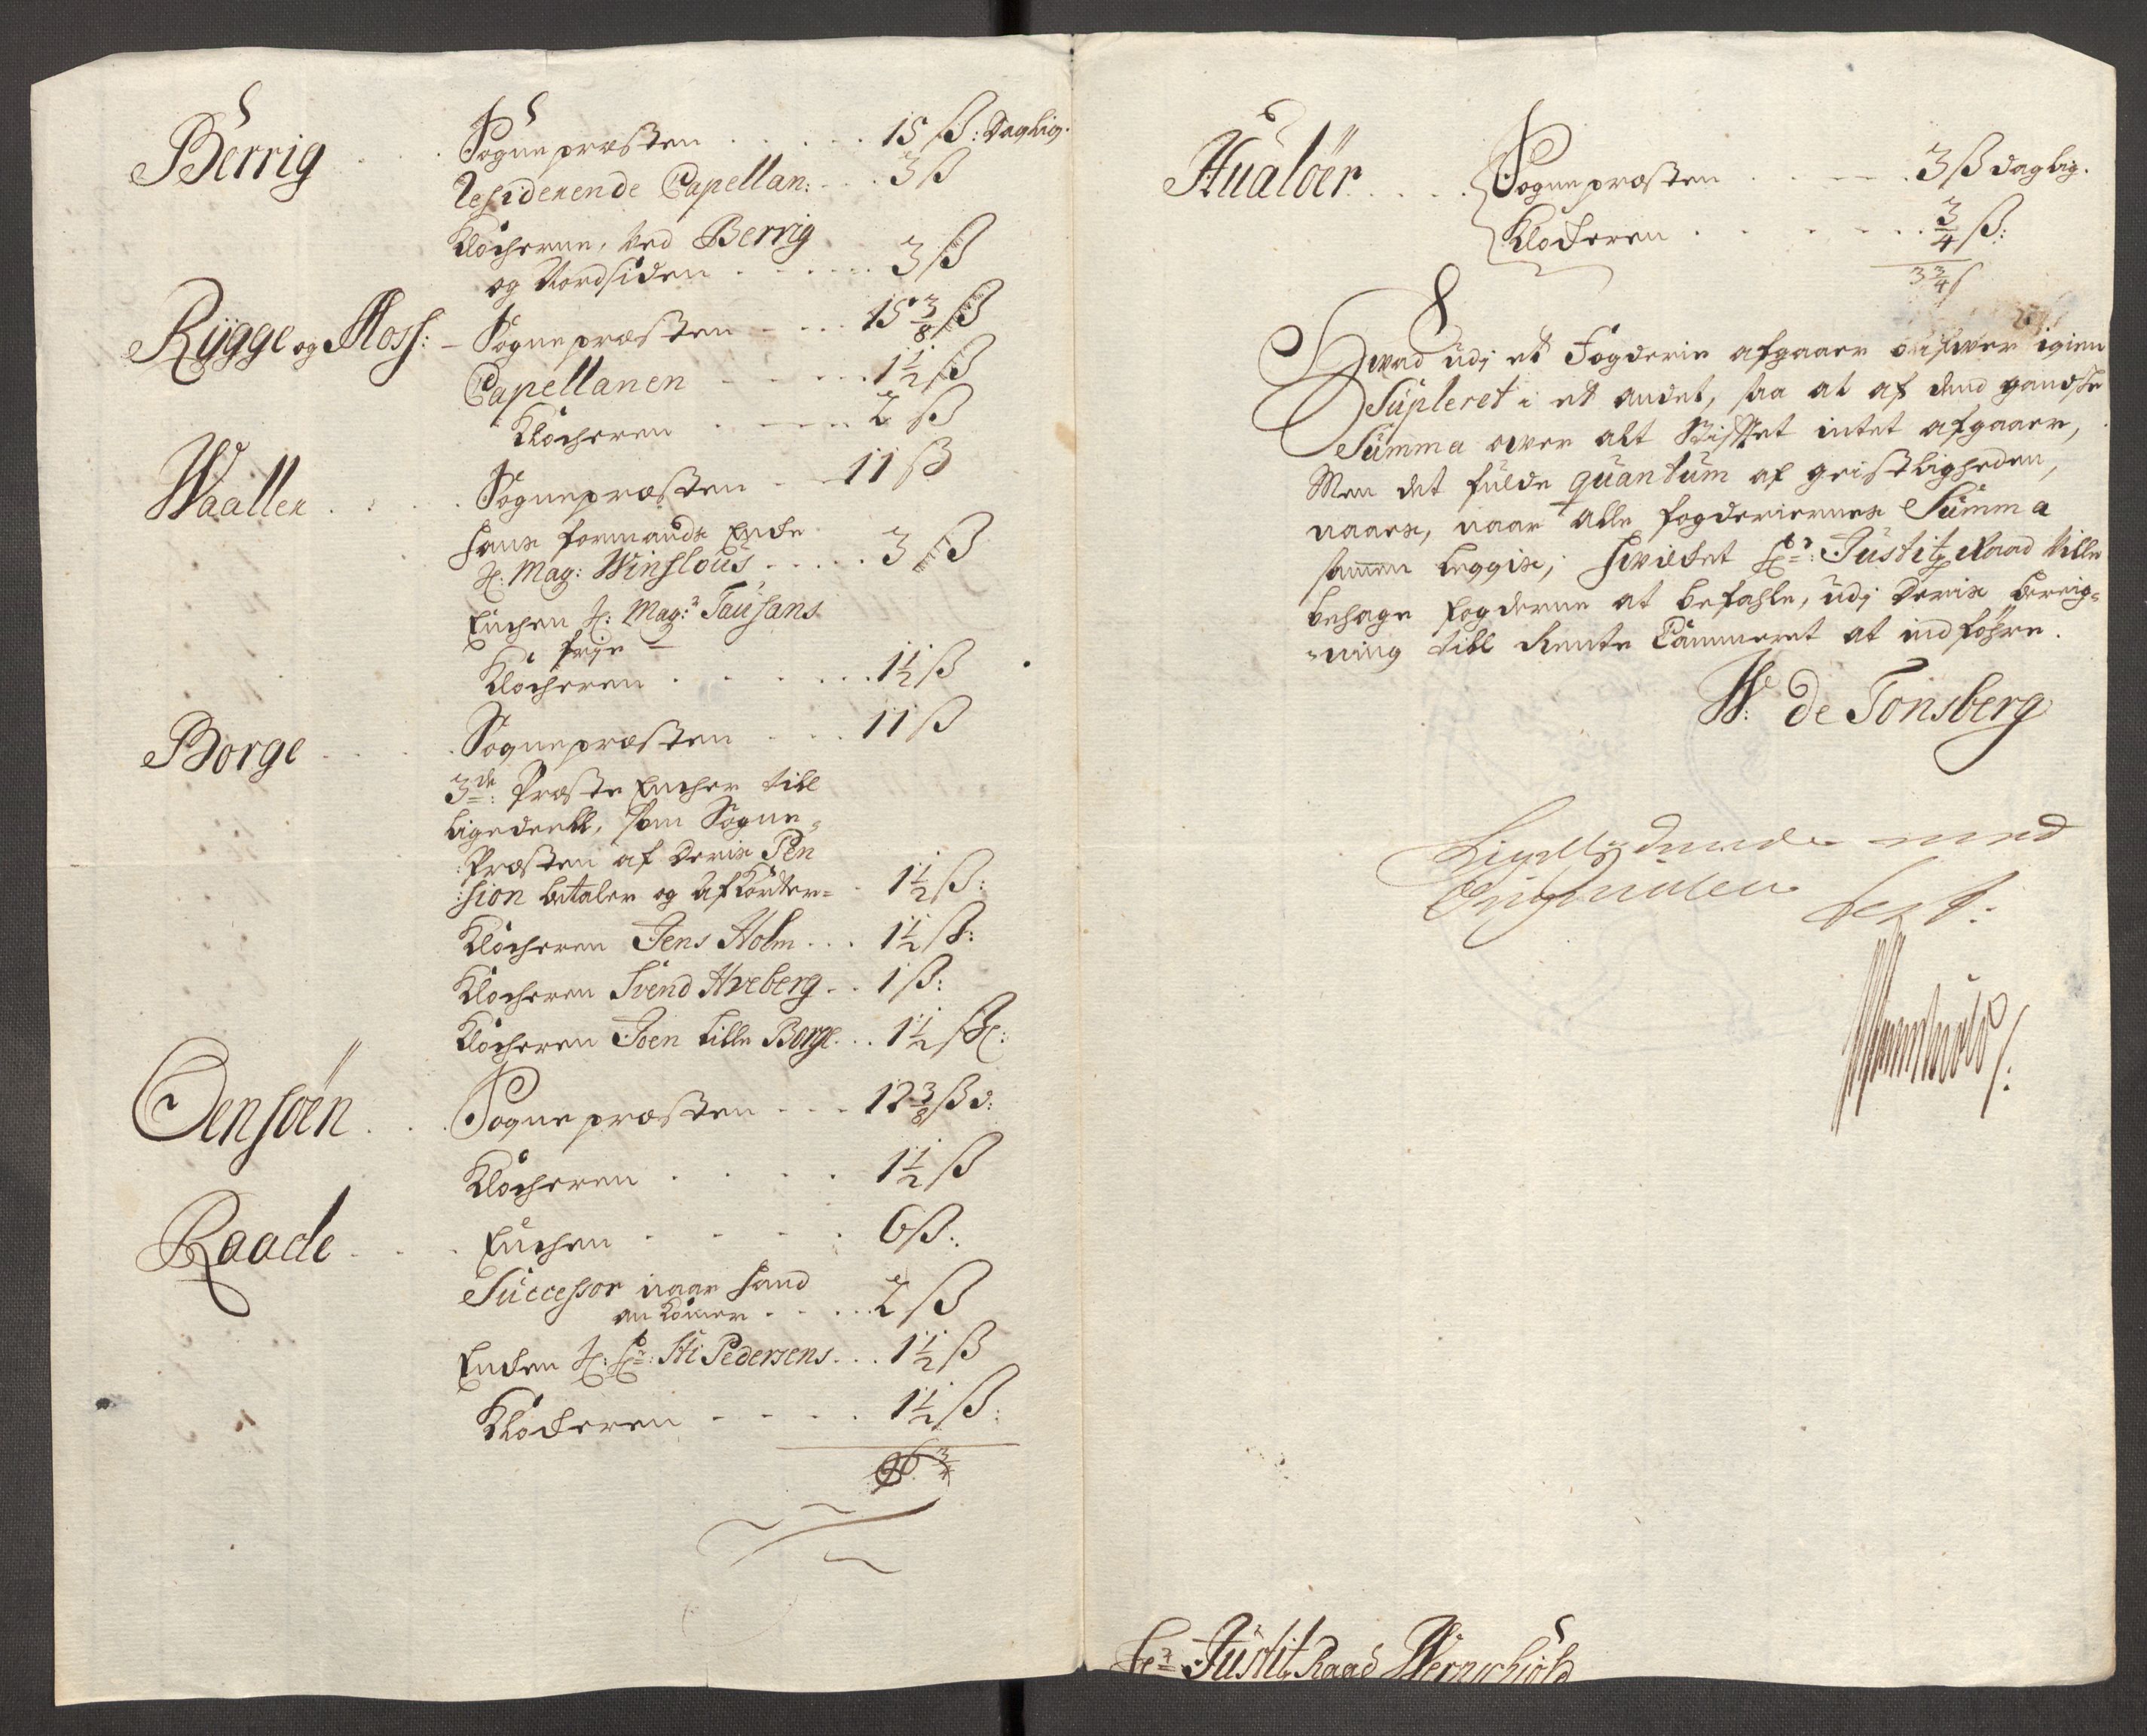 Berrig . . . Sognepræsten . . . . . 15 ß: Daglig.
Residerende Capellan: . . . 3 ß
Klocherne, ved Berrig
og Nordsiden . . . . . . 3 ß
Rÿgge og Moss: – Sognepræsten – . . . 15 3/8 ß
Capellanen . . . . . 1 1/2 ß
Klocheren . . . . . 2 ß
Waaller . . . Sognepræsten . . 11 ß
hans formands Encke
H: Mag: Winslous . . . . . 3 ß
Enchen H: Mag:r Tausans
frÿe –
Klocheren . . . . . . 1 1/2 ß
Borge . . . . Sognepræsten . . . 11 ß
3de: Præste Encher till
ligedeell, som Sogne-
Præsten af deris Pen
:sion betaler og afkorter= . 1 1/2 ß:
Klocheren Jens Holm . . . 1 1/2 ß:
Klocheren Svend Hveberg . . 1 ß:
Klocheren Joen tille Borge . . . 1 1/2 ß:
Onsöen . . . Sognepræsten . . . 12 3/8 ß d:
Klocheren . . . . 1 1/2 ß
Raade . . . Enchen . . . . . 6 ß:
Successor naar hand
an komer . . . . . 2 ß
Encken H: Hr: Sti Pedersens . . . 1 1/2 ß
Klockeren . . . . . 1 1/2 ß:
96 3/4
Hualöer . . . . Sognepræsten . . . . . 3 ß daglig.
Klockeren . . . . . . . 3/4 ß:
3 3/4 ß
Hvad udj et Fogderie afgaaer blifver igien
Supleret i et andet, saa at af dend gandske
Summa over alt Stifftet intet afgaaer,
Men det fulde quantum af geistligheden,
naaes, naar alle fogderiernes Summa
sammen leggis, hvilcket Hr: Justitz Raad ville
behage fogderne at befahle, udj deris bereig=
=ning till Rente Cammeret at indföhre.
W: de Tonsberg
Ligelljdende med
Originalen test:
Hr Justitz Raad Wernschiöld